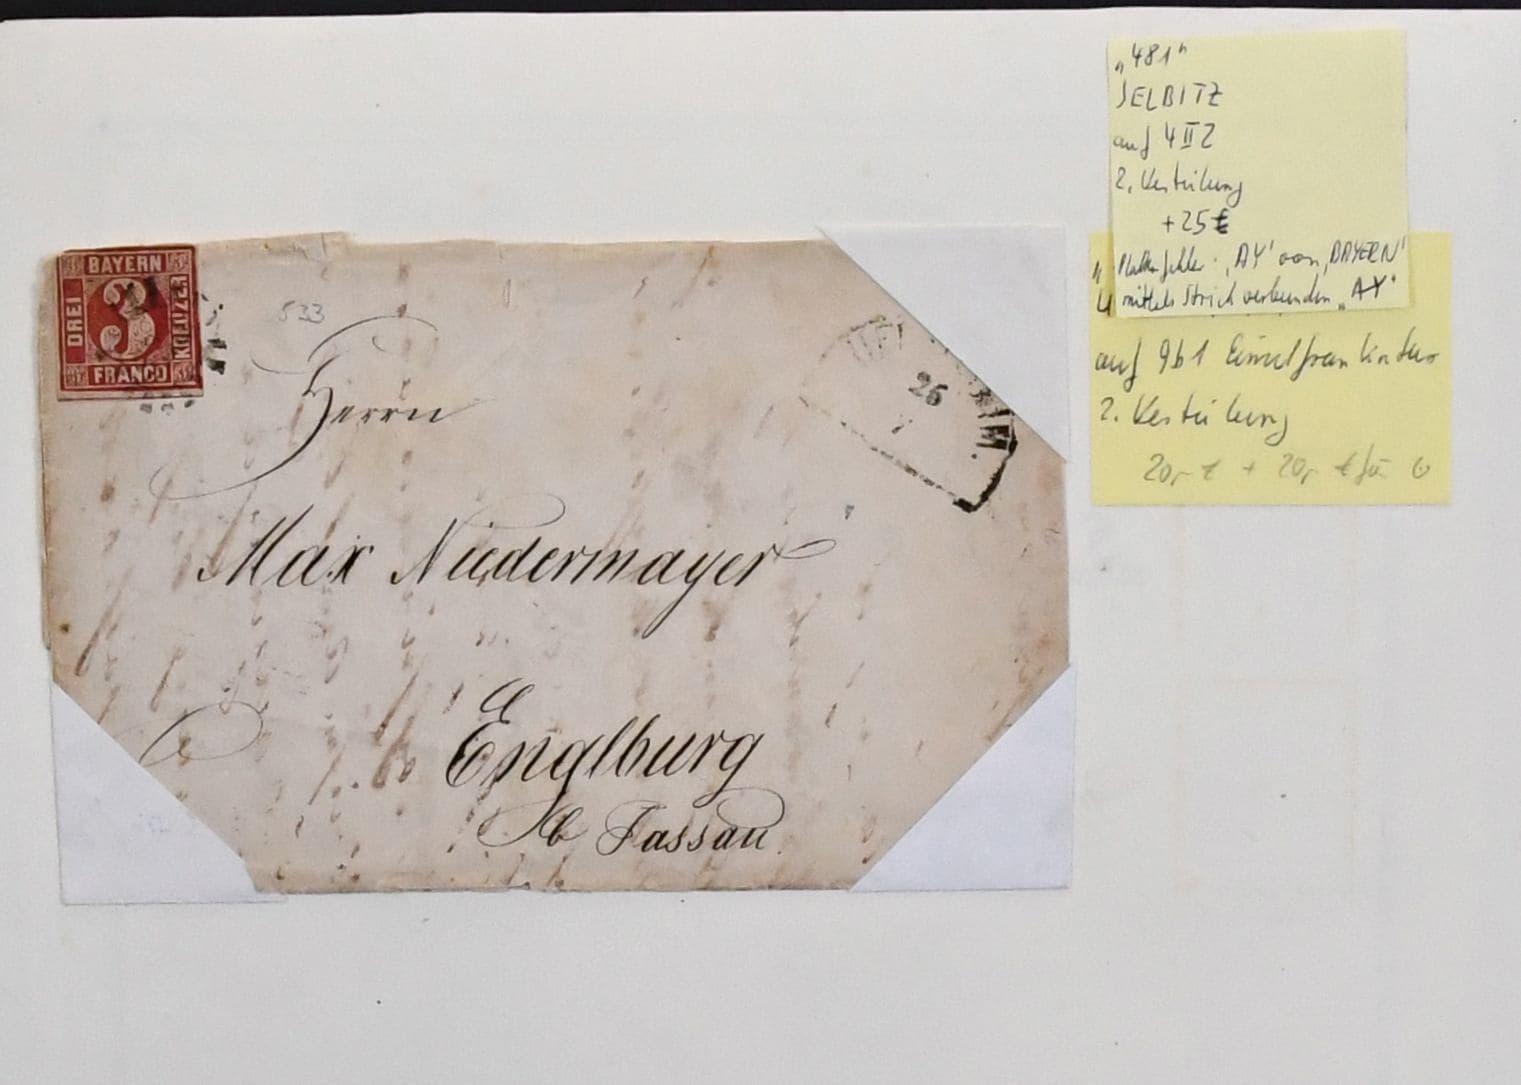 BAYERN
DREI
3
KREUZER
FRANCO
533
Herrn
Max Niedermayer
Englburg
b Passau
26
7
IM.
„481"
SELBITZ
auf 4 II 2
2. Verteilung
+25 €
Plattenfehler „AY' von „BAYERN'
mittels Strich verbunden „AY"
auf 9b1 Einzelfrankatur
2. Verteilung
20,- € + 20,- € für